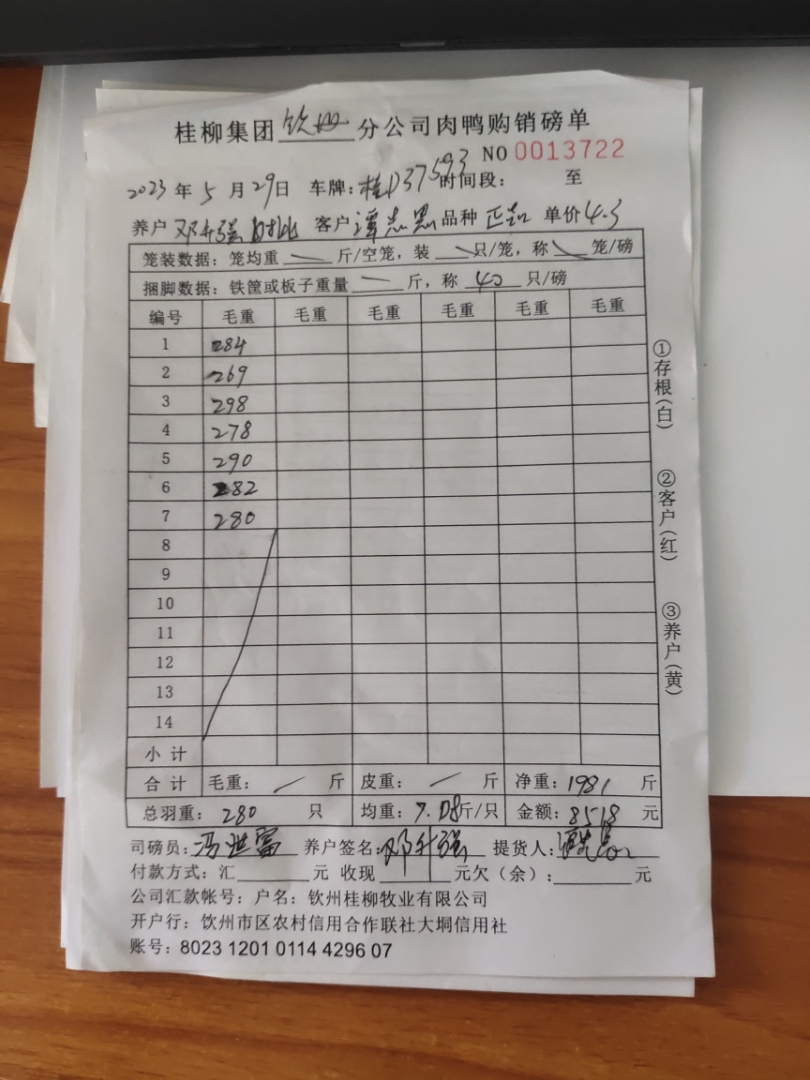 桂柳集团 钦州 分公司肉鸭购销磅单
NO 0013722
2023 年 5 月 29 日 车牌：桂D37593 时间段： 至
养户 邓升强 客户 谭志 品种 单价 4.3
笼装数据：笼均重 斤/空笼，装 只/笼，称 笼/磅
捆脚数据：铁筐或板子重量 一 斤，称 40 只/磅
编号 毛重 毛重 毛重 毛重 毛重 毛重
1 284
2 269
3 298
4 278
5 290
6 282
7 280
8
9
10
11
12
13
14
小计
合计 毛重： 斤 皮重： 斤 净重：1981 斤
总羽重：280 只 均重：7.08斤/只 金额：8518 元
司磅员：冯世富 养户签名：邓升强 提货人：
付款方式：汇 元 收现 元欠（余）： 元
公司汇款帐号：户名：钦州桂柳牧业有限公司
开户行：钦州市区农村信用合作联社大垌信用社
账号：8023 1201 0114 4296 07
①存根（白）
②客户（红）
③养户（黄）